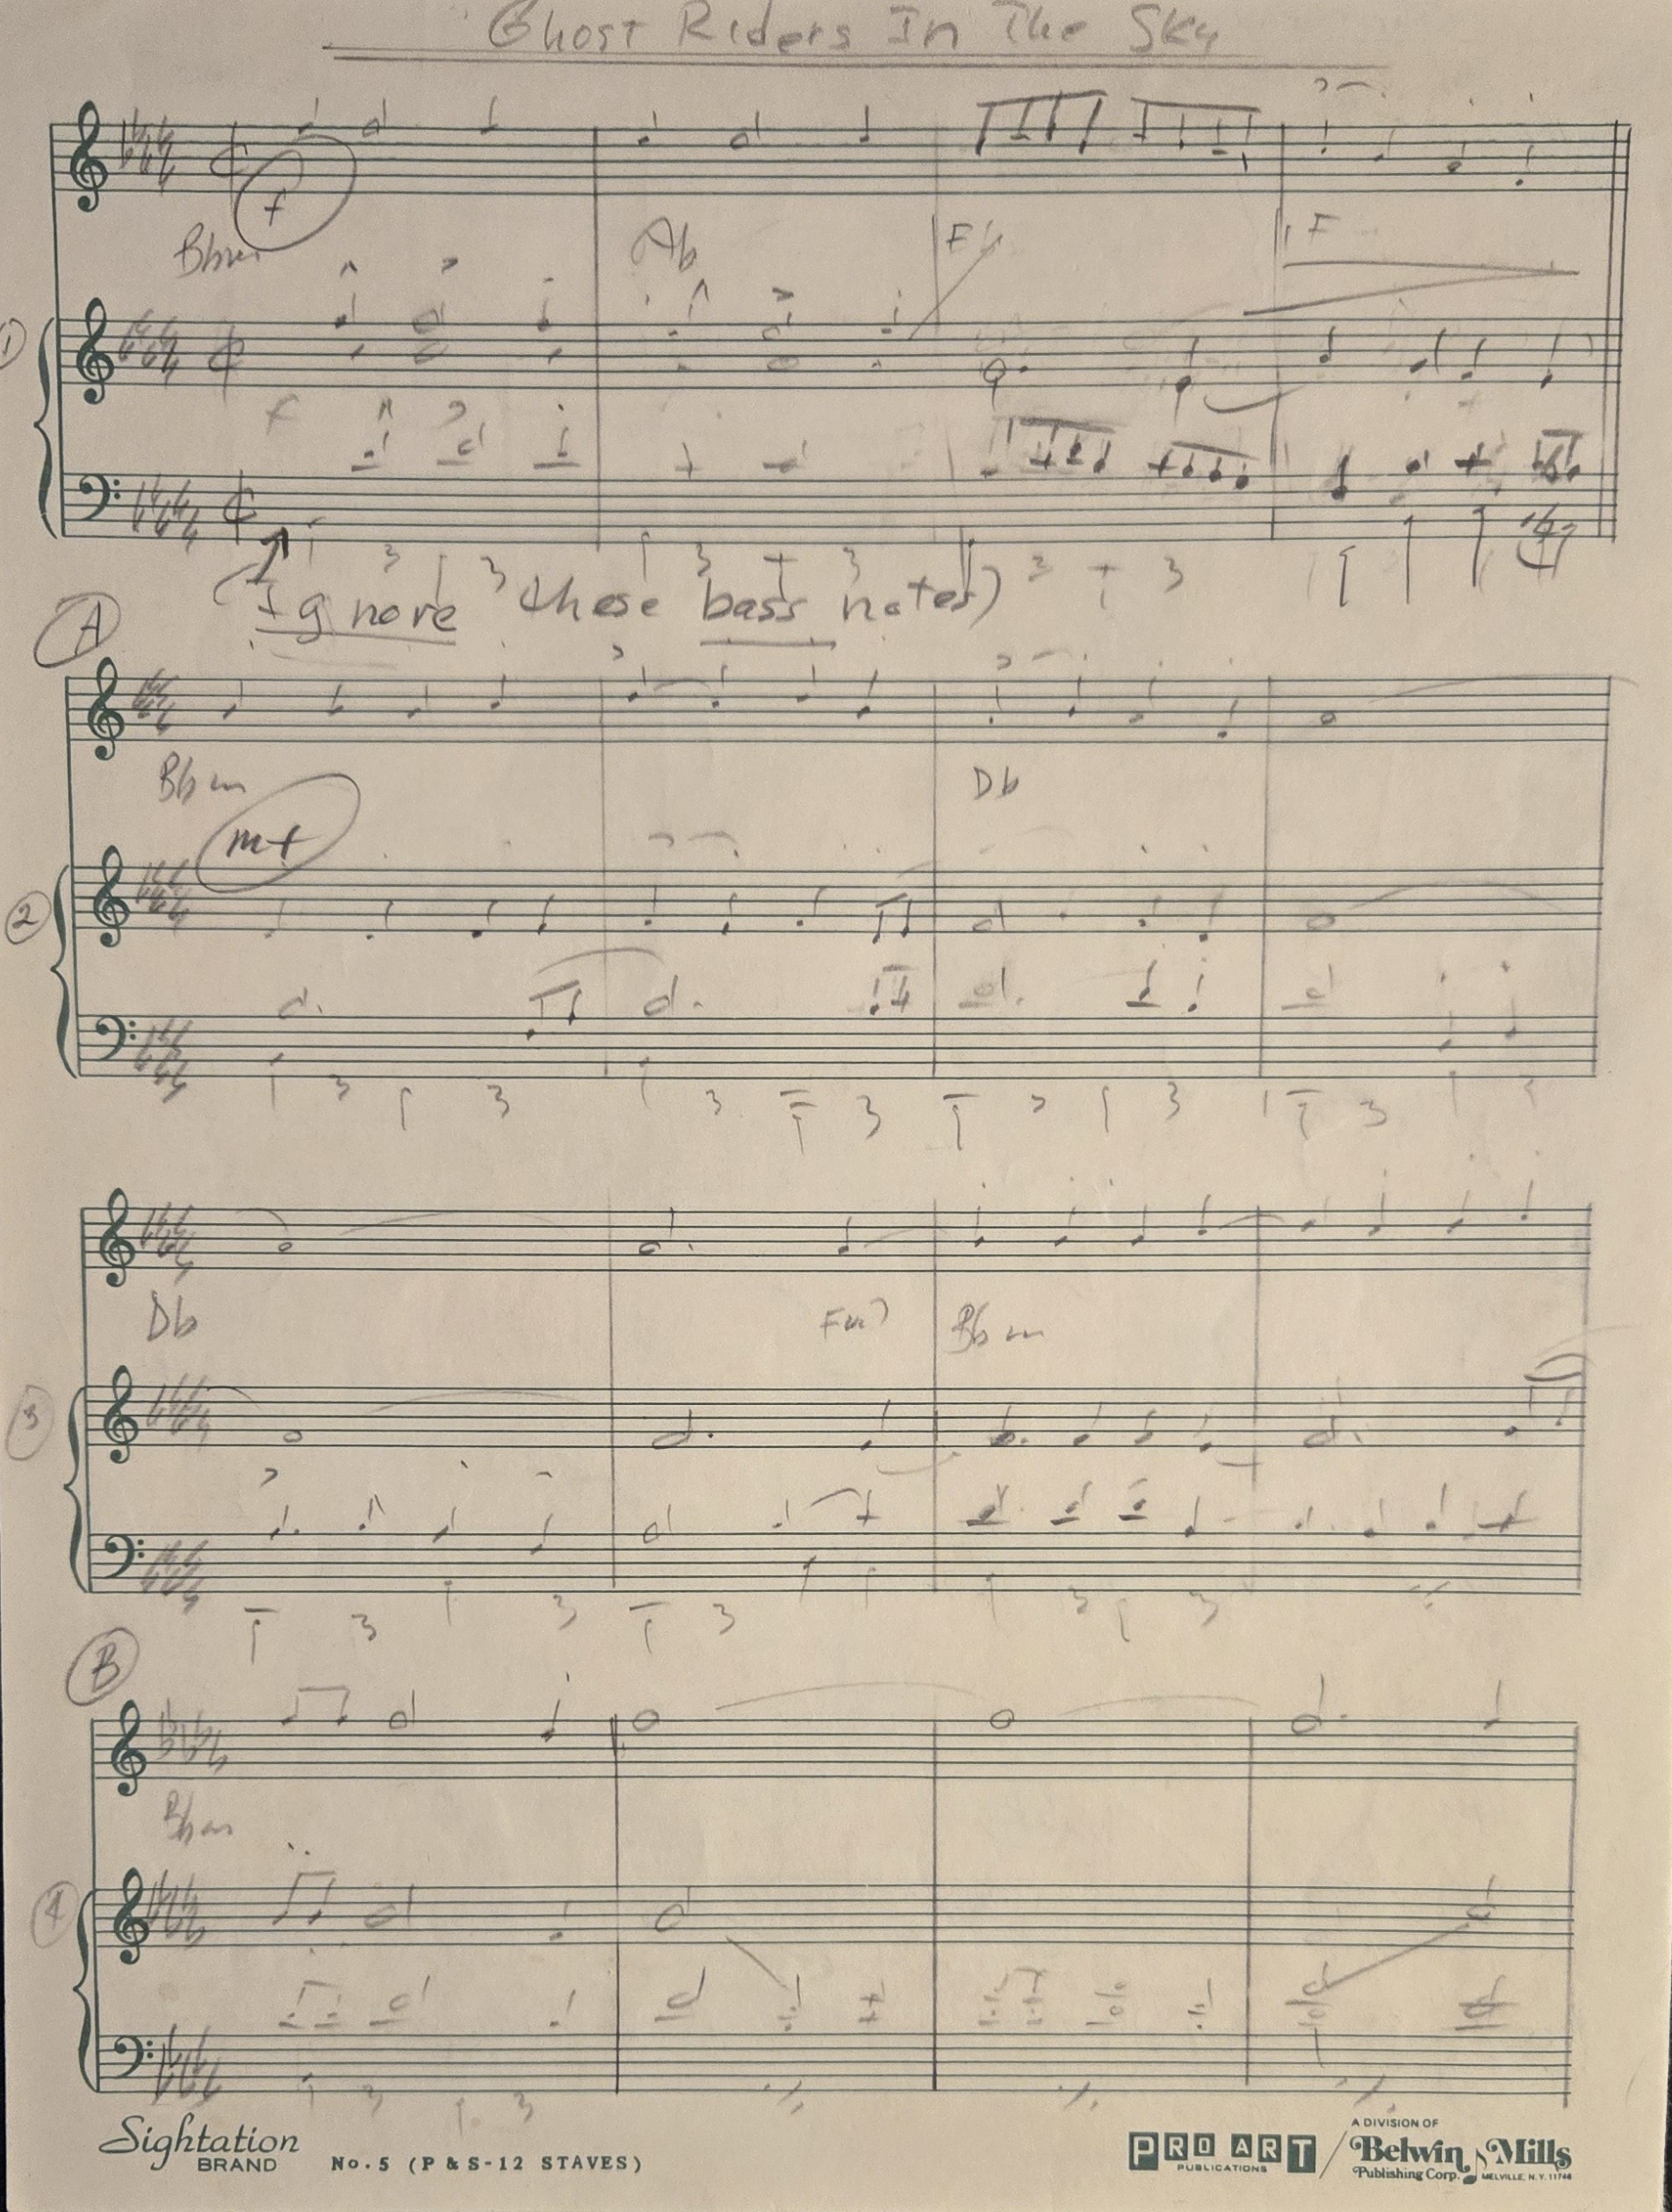 Ghost Riders In The Sky
f
Bbm Ab F F
1
f
(Ignore these bass notes)
A
Bbm Db
mf
2
Db Fm7 Bbm
3
B
Bbm
4
Sightation
BRAND No. 5 (P & S-12 STAVES)
PRO ART
PUBLICATIONS
A DIVISION OF
Belwin Mills
Publishing Corp. MELVILLE, N.Y. 11746